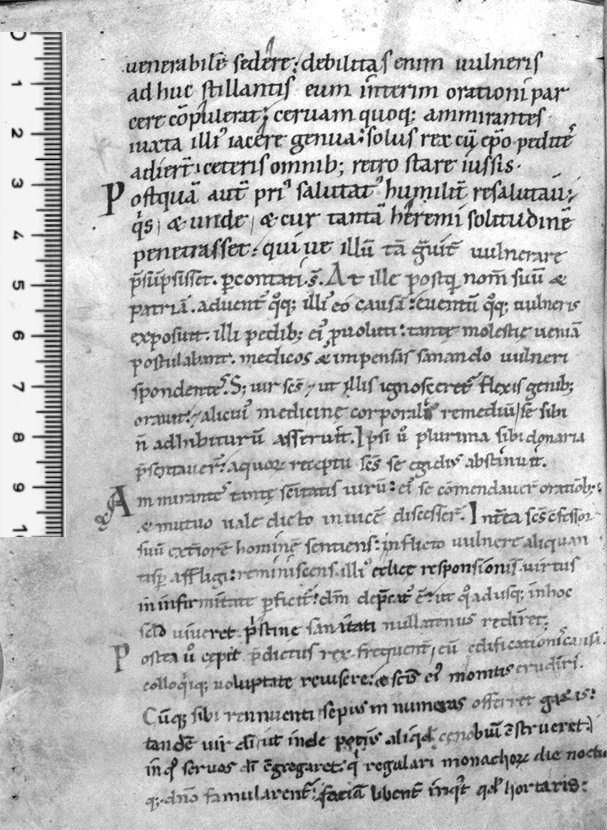 venerabilē sedere; debilitas enim uulneris
ad huc stillantis eum interim orationi par
cere cōpluerat; ceruam quoq; ammirantes
iuxta illi' iacere genua: solus rex cū ep̄o pedite
adier̄t. ceteris omnib; retro stare iussis.
Postquā aut̄ pri' salutat' humilit̄ resalutau;
q̇s, & unde, & cur tantā heremi solitudinē
penetrasset. qui ue illū tā g̃uit̄ uulnerare
p̄sūpsisset. ꝑcontati s̄. At ille postq̇ nom̄ suū &
patriā. aduent' q̊q; illi' eo causā: euentū q̊q; uulneris
exposuit. illi pedib; ei' ꝓuoluti: tantę molestię ueniā
postulabant. medicos & impensis sanando uulneri
spondentes. S; uir sc̄s & ut illis ignosceret flexis genib;
orauit: & alicui' medicinę corporalis remediū se sibi
n̄ adhibiturū asseruit. Ipsi ů plurima sibi donaria
p̄sentauer̄: a quor̄ receptu sc̄s se egidi' abstinuit.
Ammirantes tantę sc̄itatis uirū: ei' se cōmendauer̄ orationib;
& mutuo uale dicto inuicē discesser̄. Interea sc̄s c̄fessor
suū exteriorē hominē sentiens: inflicto uulnere aliquan
tisp̄ affligi: reminiscens illi' celice responsionis. uirtus
in infirmitate ꝑficit̄: dn̄m dep̄cat' ē: ut q̊ad usq; in hoc
sc̄lo uiueret. p̄stine sanitati nullatenus rediret;
Postea ů cepit p̄dictus rex frequent̄, eū edificationis causa
colloq̇iq; uoluptate reuisere: & sc̄is ei' monitis erudiri.
Cūq; sibi rennuenti sepius in numeras offerret gazas:
tandē uir dī, ut inde potius aliq̇d cenobiū c̄strueret
in q̊ seruos dī c̄gregaret. q̇ regulari monachorū die noctu
q; dn̄o famularent̄: faciā libent̄ inq̇t qd̄ hortaris: